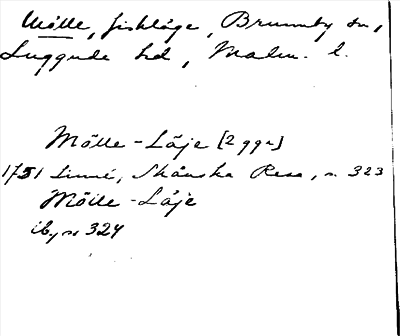 Mölle, fiskläge, Brunnby sn,
Luggude hd, Malm. l.
Mölle-Läje [2 ggr]
1751 Linné, Skånska Resa, s. 323
Mölle-Läje
ib., s 324